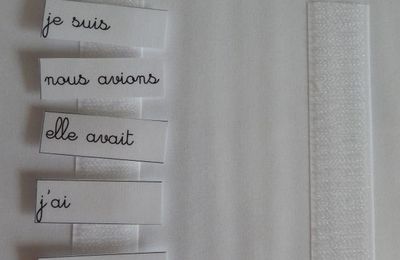 je suis
nous avions
elle avait
j'ai